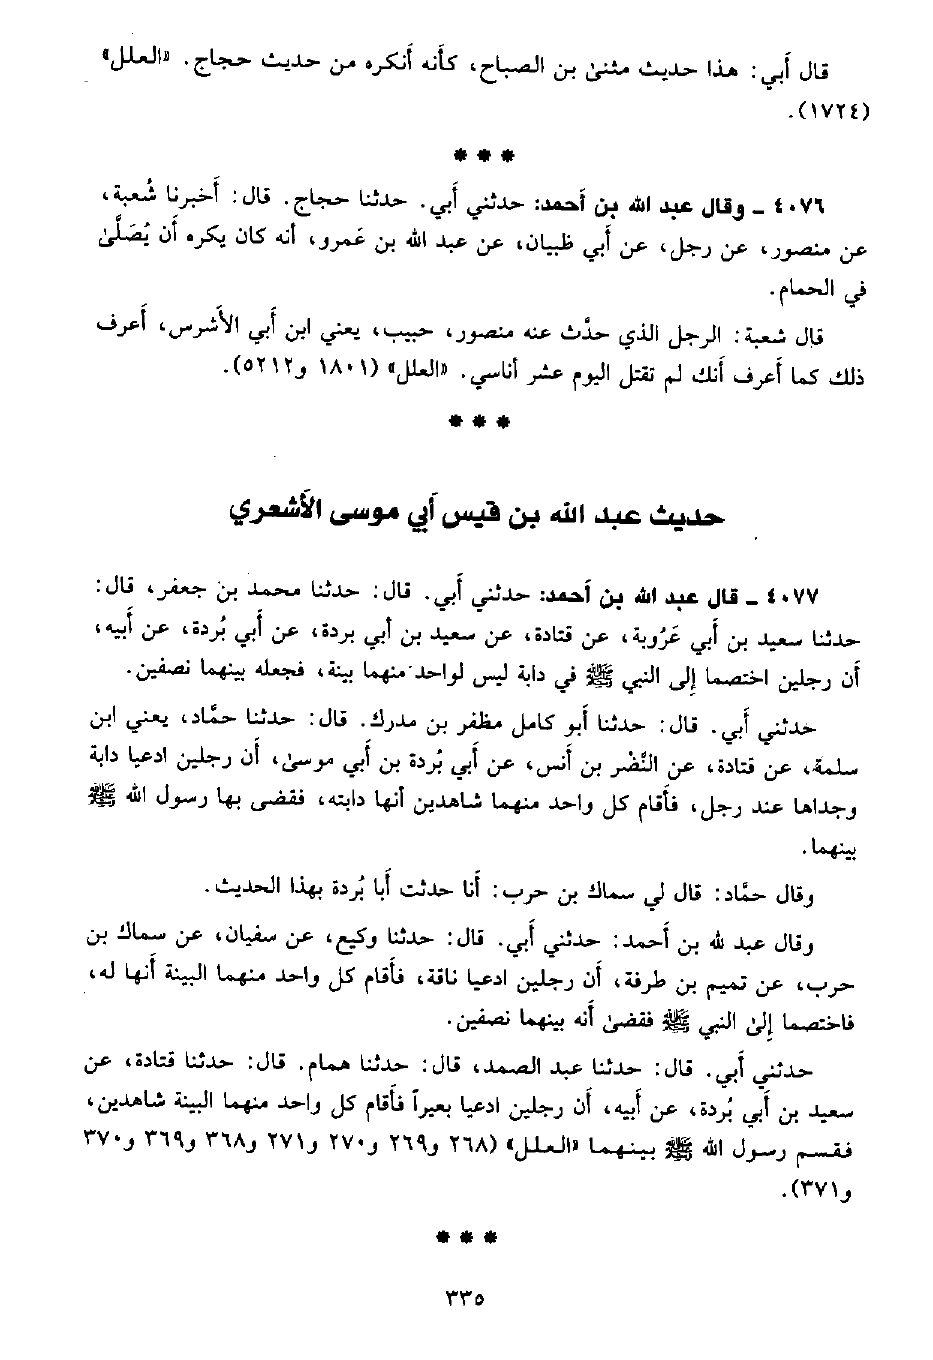 قال أَبي: هذا حديث مثنىٰ بن الصباح، كأنه أنكره من حديث حجاج. «العلل»
(١٧٢٤).
* * *
٤٠٧٦ ـ وقال عبد الله بن أحمد: حدثني أَبي. حدثنا حجاج. قال: أَخبرنا شُعبة،
عن منصور، عن رجل، عن أَبي ظبيان، عن عبد الله بن عَمرو، أنه كان يكره أَن يُصَلَّىٰ
في الحمام.
قال شعبة: الرجل الذي حدَّث عنه منصور، حبيب، يعني ابن أَبي الأَشرس، أَعرف
ذلك كما أَعرف أَنك لم تقتل اليوم عشر أناسي. «العلل» (١٨٠١ و٥٢١٢).
* * *
حديث عبد الله بن قيس أَبي موسى الأَشعري
٤٠٧٧ ـ قال عبد الله بن أحمد: حدثني أَبي. قال: حدثنا محمد بن جعفر، قال:
حدثنا سعيد بن أَبي عَرُوبة، عن قتادة، عن سعيد بن أبي بردة، عن أَبي بُردة، عن أَبيه،
أَن رجلين اختصما إِلى النبي ﷺ في دابة ليس لواحد منهما بينة، فجعله بينهما نصفين.
حدثني أَبي. قال: حدثنا أَبو كامل مظفر بن مدرك. قال: حدثنا حمَّاد، يعني ابن
سلمة، عن قتادة، عن النَّضْر بن أنس، عن أَبي بُردة بن أَبي موسىٰ، أَن رجلين ادعيا دابة
وجداها عند رجل، فأَقام كل واحد منهما شاهدين أنها دابته، فقضى بها رسول الله ﷺ
بينهما.
وقال حمَّاد: قال لي سماك بن حرب: أَنا حدثت أَبا بُردة بهذا الحديث.
وقال عبد لله بن أَحمد: حدثني أَبي. قال: حدثنا وكيع، عن سفيان، عن سماك بن
حرب، عن تميم بن طرفة، أَن رجلين ادعيا ناقة، فأَقام كل واحد منهما البينة أَنها له،
فاختصما إِلىٰ النبي ﷺ فقضىٰ أَنه بينهما نصفين.
حدثني أَبي. قال: حدثنا عبد الصمد، قال: حدثنا همام. قال: حدثنا قتادة، عن
سعيد بن أَبي بُردة، عن أبيه، أَن رجلين ادعيا بعيراً فأَقام كل واحد منهما البينة شاهدين،
فقسم رسول الله ﷺ بينهما «العلل» (٢٦٨ و٢٦٩ و٢٧٠ و٢٧١ و٣٦٨ و٣٦٩ و٣٧٠
و٣٧١).
* * *
٣٣٥